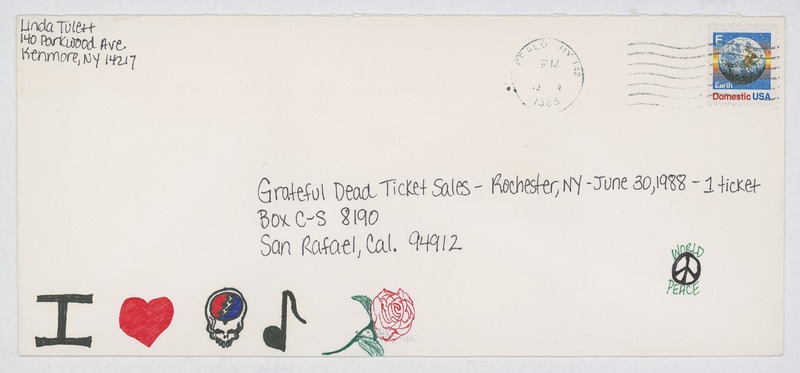 Linda Tulett
140 Parkwood Ave.
Kenmore, NY 14217
FFALO, NY 142
PM
1988
F
Earth
Domestic USA
Grateful Dead Ticket Sales - Rochester, NY - June 30, 1988 - 1 ticket
Box C-S 8190
San Rafael, Cal. 94912
WORLD
PEACE
I